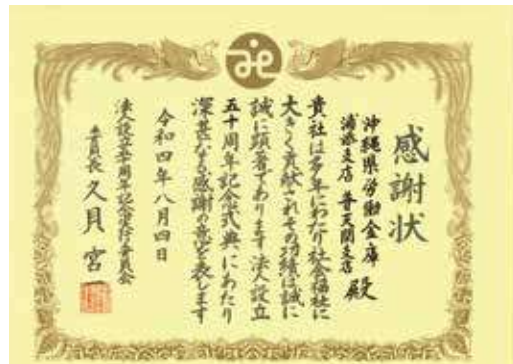 感謝状
沖縄県労働金庫
浦添支店 普天間支店 殿
貴社は多年にわたり社会福祉に
大きく貢献されその功績は誠に
誠に顕著であります 法人設立
五十周年記念式典にあたり
深甚なる感謝の意を表します
令和四年八月四日
法人設立五十周年記念実行委員会
委員長 久貝 宮一